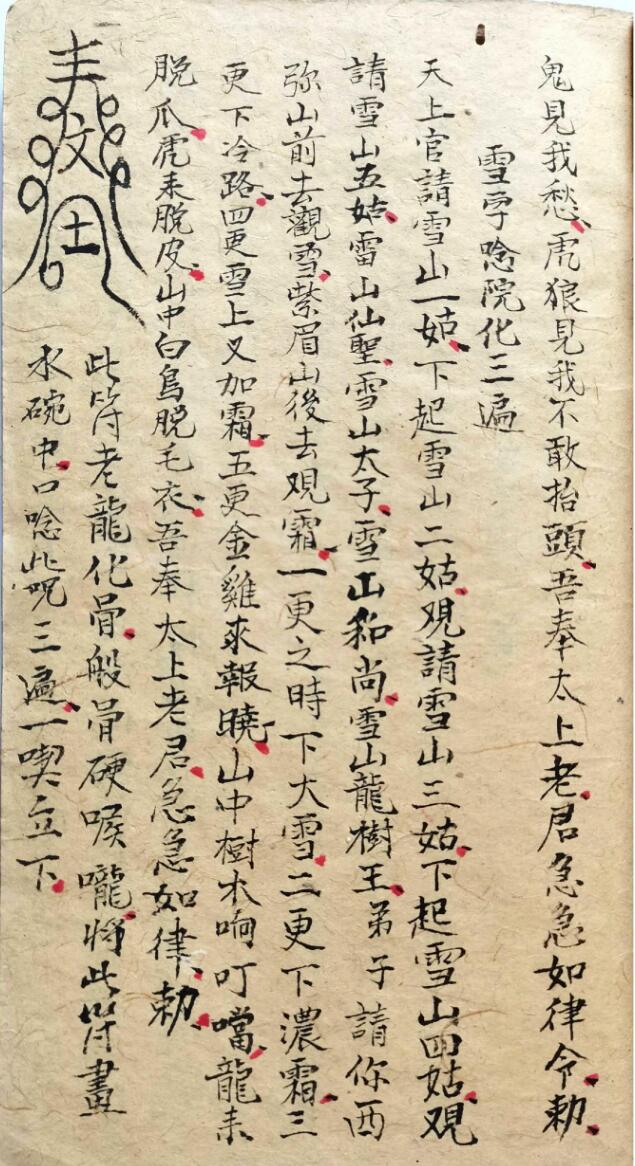 鬼見我愁虎狼見我不敢抬頭吾奉太上老君急急如律令勅
雪字唸院化三遍
天上官請雪山一姑下起雪山二姑观請雪山三姑下起雪山四姑观
請雪山五姑雷山仙聖雪山太子雪山和尚雪山龍樹王弟子請你西
弥山前去觀雪紫眉山後去观霜一更之時下大雪二更下濃霜三
更下冷路四更雪上又加霜五更金雞來報曉山中樹木响叮噹龍来
脱爪虎来脱皮山中白鳥脱毛衣吾奉太上老君急急如律勅
此符老龍化骨般骨硬喉嚨將此符畫
水碗中口唸此咒三遍一喫立下